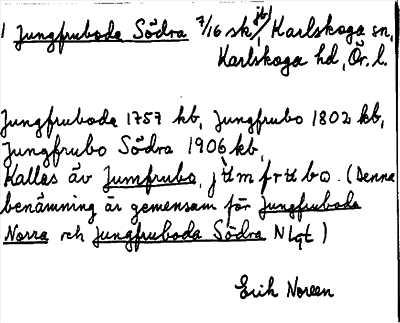 1 Jungfruboda Södra 7/16 sk jb/ Karlskoga sn,
Karlskoga hd, Ör. l.
Jungfruboda 1757 kb, Jungfrubo 1802 kb,
Jungfrubo Södra 1906 kb,
Kallas äv Jumfrubo,
(Denna
benämning är gemensam för Jungfruboda
Norra och Jungfruboda Södra
Erik Noreen